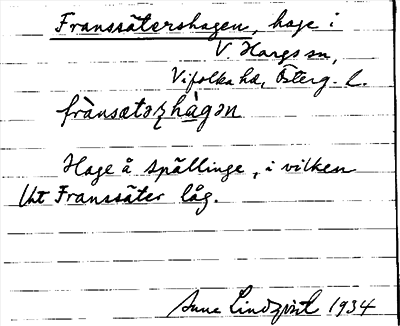 Franssätershagen, hage i
V. Hargs sn,
Vifolka hd, Österg. l.
frànsætəʒhàgən
Hage å Spällinge, i vilken
lht Franssäter låg.
Sune Lindqvist 1934